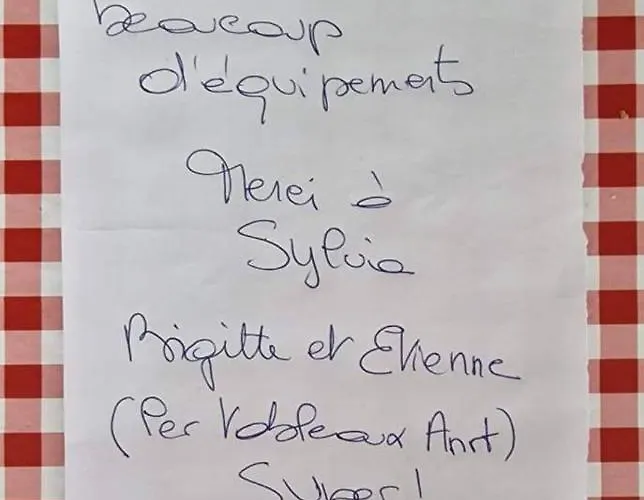 beaucoup
d'équipements
Merci à
Sylvia
Brigitte et Etienne
(Per Tableaux Anrt)
Super!